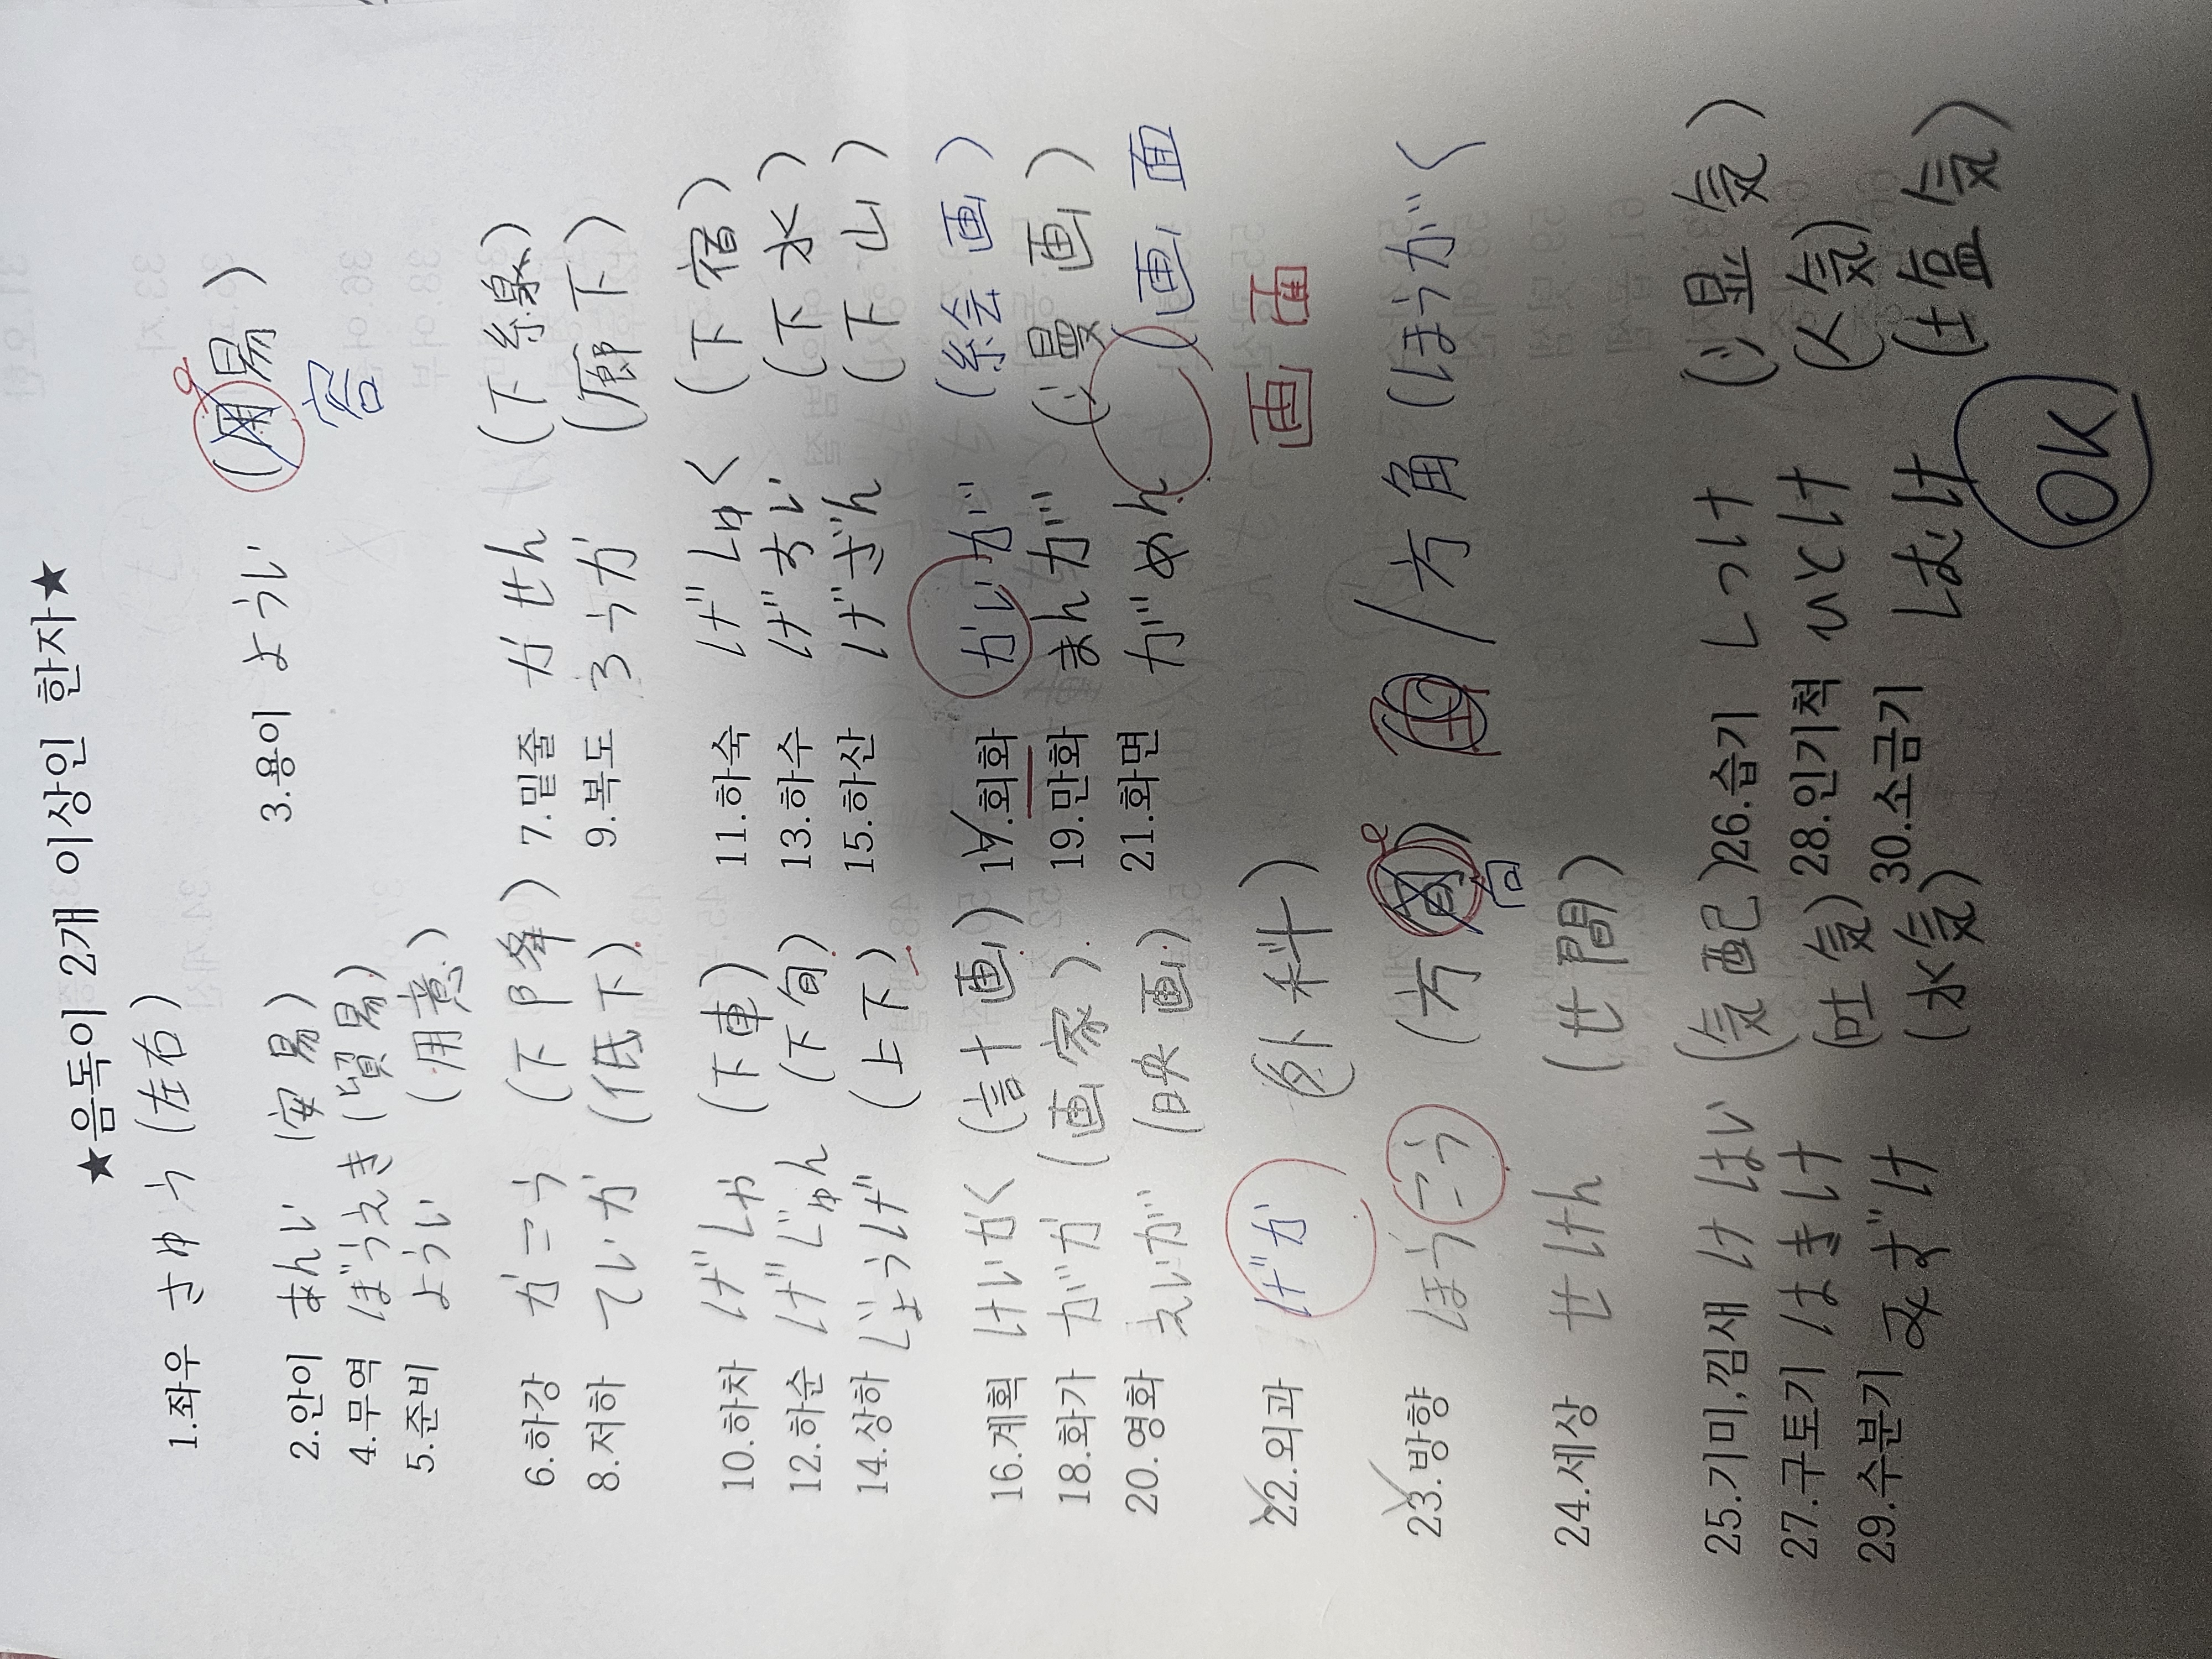 ★음독이 2개 이상인 한자★
1.좌우 さゆう (左右)
2.안이 あんい (安易) 3.용이 ようい (用易)
容
4.무역 ぼうえき (貿易)
5.준비 ようい (用意)
6.하강 かこう (下降) 7.밑줄 かせん (下線)
8.저하 ていか (低下) 9.복도 ろうか (廊下)
10.하차 げしゃ (下車) 11.하숙 げしゅく (下宿)
12.하순 げじゅん (下旬) 13.하수 げすい (下水)
14.상하 じょうげ (上下) 15.하산 げざん (下山)
16.계획 けいかく (計画) 17.회화 かいが (絵画)
18.화가 がか (画家) 19.만화 まんが (漫画)
20.영화 えいが (映画) 21.화면 がめん (画面)
画面
22.외과 げか (外科)
23.방향 ほうこう (方向) / 方角 (ほうがく
向
24.세상 せけん (世間)
25.기미,낌새 けはい (気配) 26.습기 しっけ (湿気)
27.구토기 はきけ (吐気) 28.인기척 ひとけ (人気)
29.수분기 みずけ (水気) 30.소금기 しおけ (塩気)
OK